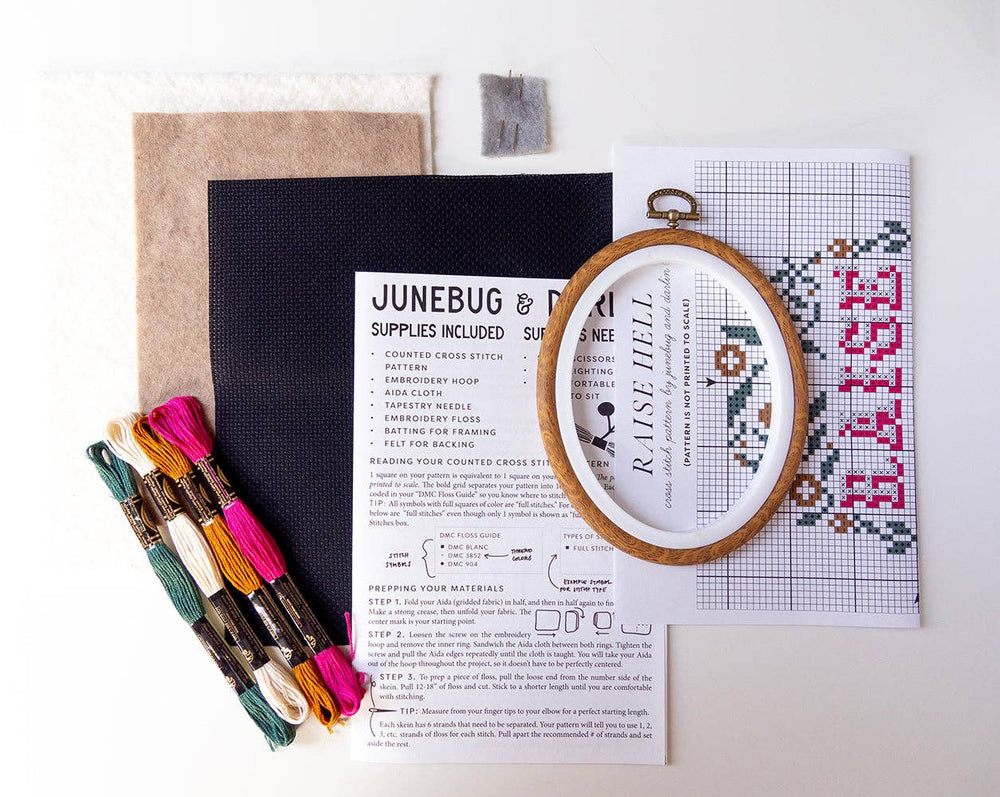 JUNEBUG &
SUPPLIES INCLUDED
• COUNTED CROSS STITCH
PATTERN
• EMBROIDERY HOOP
• AIDA CLOTH
• TAPESTRY NEEDLE
• EMBROIDERY FLOSS
• BATTING FOR FRAMING
• FELT FOR BACKING
SCISSORS
TO SIT
READING YOUR COUNTED CROSS
1 square on your pattern is equivalent to 1 square on your
printed to scale. The bold grid separates your pattern into
coded in your "DMC Floss Guide" so you know where to stitch
TIP: All symbols with full squares of color are "full stitches." For
below are "full stitches" even though only 1 symbol is shown as
Stitches box.
DMC FLOSS GUIDE
■ DMC BLANC
- DMC 3852
● DMC 904
STITCH
SYMBOLS
THREAD
COLORS
TYPES OF
■ FULL STITCH
EXAMPLE SYMBOL
FOR STITCH TYPE
PREPPING YOUR MATERIALS
STEP 1. Fold your Aida (gridded fabric) in half, and then in half again to
Make a strong crease, then unfold your fabric. The
center mark is your starting point.
STEP 2. Loosen the screw on the embroidery
hoop and remove the inner ring. Sandwich the Aida cloth between both rings. Tighten the
screw and pull the Aida edges repeatedly until the cloth is taught. You will take your Aida
out of the hoop throughout the project, so it doesn't have to be perfectly centered.
STEP 3. To prep a piece of floss, pull the loose end from the number side of the
skein. Pull 12-18" of floss and cut. Stick to a shorter length until you are comfortable
with stitching.
TIP: Measure from your finger tips to your elbow for a perfect starting length.
Each skein has 6 strands that need to be separated. Your pattern will tell you to use 1, 2,
3, etc. strands of floss for each stitch. Pull apart the recommended # of strands and set
aside the rest.
RAISE HELL
cross stitch pattern by junebug and darlin
(PATTERN IS NOT PRINTED TO SCALE)
RAISE